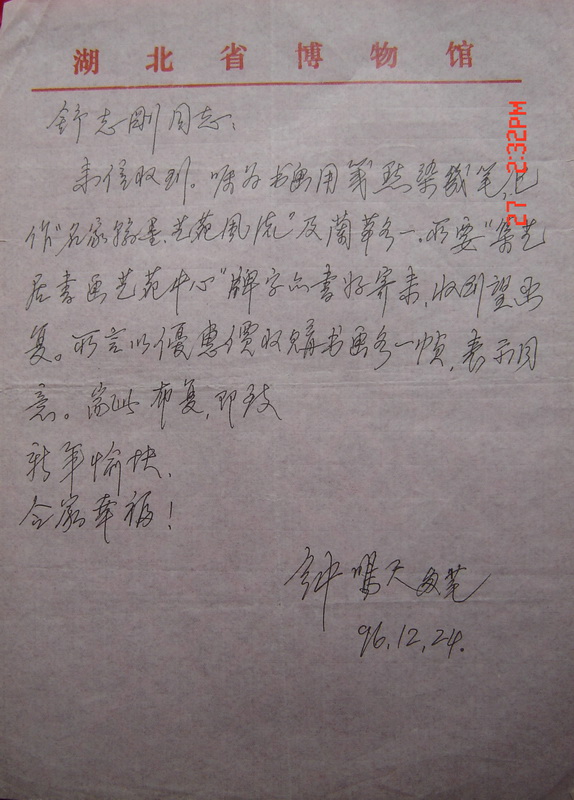 湖北省博物馆
舒志刚同志：
来信收到。嘱为书画用笺点染几笔，已
作“名家翰墨、艺苑风流”及兰草各一。所要“集艺
居书画艺苑中心”牌字亦书好寄来，收到望函
复。所言以優惠價收購书画各一帧，表示同
意。岁此布复，即致
新年愉快、
全家幸福！
钟鸣天
96.12.24.
27 2:32PM